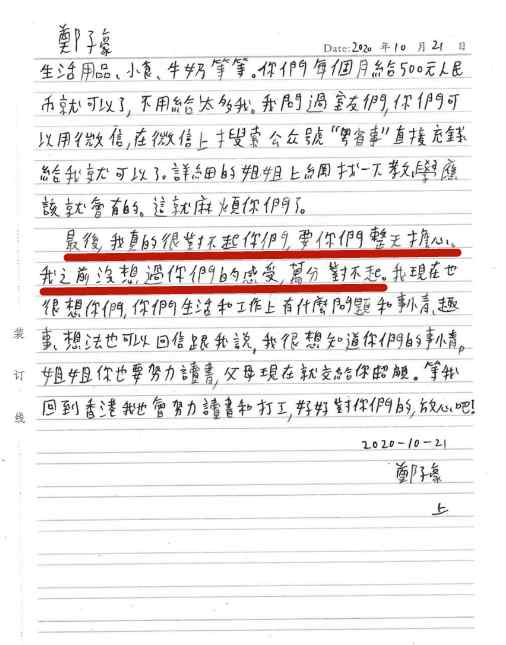 鄭子豪
Date: 2020 年 10 月 21 日
生活用品、小食、牛奶等等。你們每個月給500元人民
币就可以了,不用給太多我。我問過室友們,你們可
以用微信,在微信上搜索公众號“粤省事”直接充錢
給我就可以了。詳細的姐姐上網找一下教學應
該就會有的。這就麻煩你們了。
最後,我真的很對不起你們,要你們整天擔心。
我之前没想過你們的感受,萬分對不起。我現在也
很想你們,你們生活和工作上有什麼問題和事情、趣
事、想法也可以回信跟我說,我很想知道你們的事情。
姐姐你也要努力讀書,父母現在就交給你照顧。等我
回到香港我也會努力讀書和打工,好好對你們的,放心吧!
2020-10-21
鄭子豪
上
装
订
线